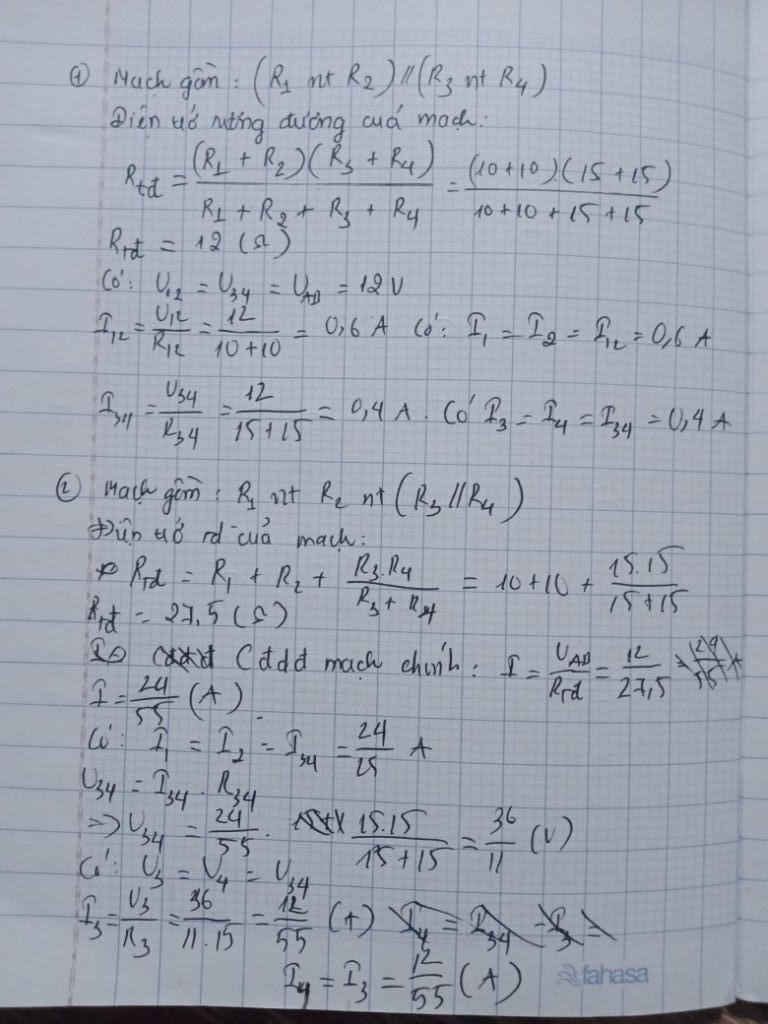 ① Mạch gồm: (R₁ nt R₂) // (R₃ nt R₄)
Điện trở tương đương của mạch:
Rtđ = (R₁ + R₂)(R₃ + R₄) / (R₁ + R₂ + R₃ + R₄) = (10+10)(15+15) / (10+10+15+15)
Rtđ = 12 (Ω)
Có: U₁₂ = U₃₄ = U_AB = 12V
I₁₂ = U₁₂/R₁₂ = 12/(10+10) = 0,6 A Có: I₁ = I₂ = I₁₂ = 0,6 A
I₃₄ = U₃₄/R₃₄ = 12/(15+15) = 0,4 A. Có I₃ = I₄ = I₃₄ = 0,4 A
② Mạch gồm: R₁ nt R₂ nt (R₃ // R₄)
Điện trở tđ của mạch:
Rtđ = R₁ + R₂ + R₃.R₄/(R₃ + R₄) = 10+10 + 15.15/(15+15)
Rtđ = 27,5 (Ω)
Cđdđ mạch chính: I = U_AB/Rtđ = 12/27,5
I = 24/55 (A)
Có: I₁ = I₂ = I₃₄ = 24/25 A
U₃₄ = I₃₄ . R₃₄
=> U₃₄ = 24/55 . 15.15/(15+15) = 36/11 (V)
Có: U₃ = U₄ = U₃₄
I₃ = U₃/R₃ = 36/(11.15) = 12/55 (A) I₄ = I₃₄ - I₃ =
I₄ = I₃ = 12/55 (A)
fahasa